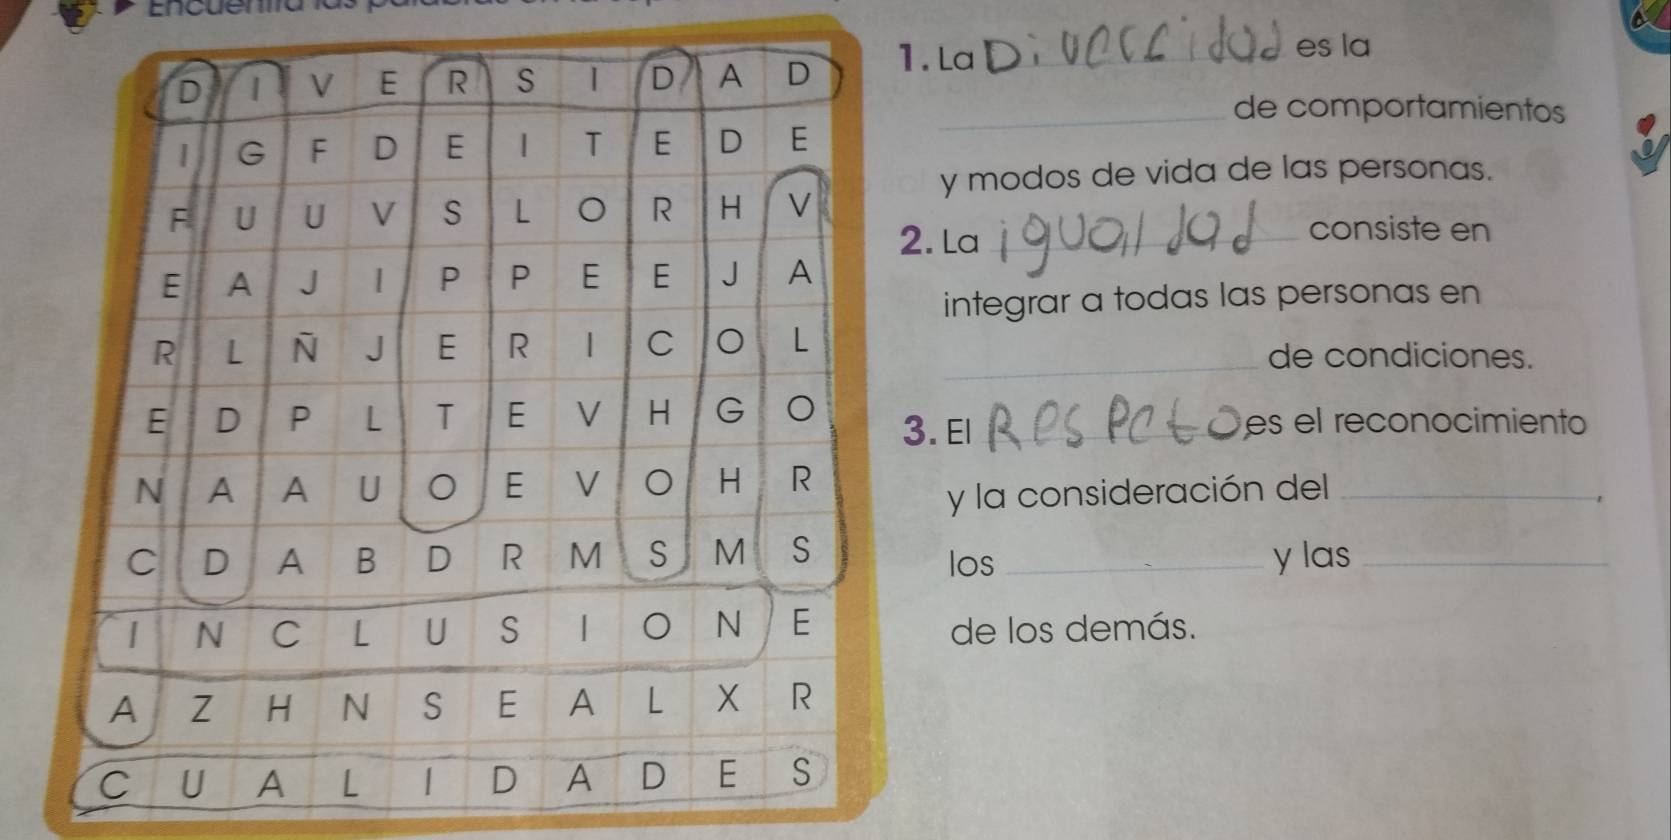 D I V E R S I D A D
I G F D E I T E D E
F U U V S L O R H V
E A J I P P E E J A
R L Ñ J E R I C O L
E D P L T E V H G O
N A A U O E V O H R
C D A B D R M S M S
I N C L U S I O N E
A Z H N S E A L X R
C U A L I D A D E S
1. La Divercidad es la
de comportamientos
y modos de vida de las personas.
2. La igualdad consiste en
integrar a todas las personas en
de condiciones.
3. El Respeto es el reconocimiento
y la consideración del .
los y las
de los demás.